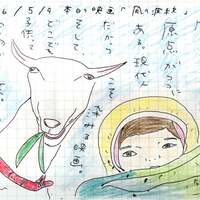 6/5/9 本日の映画「風の波紋」
原点がここに
ある。現代人
だからこそ
染みる映画。
そして
どこでも
子供って